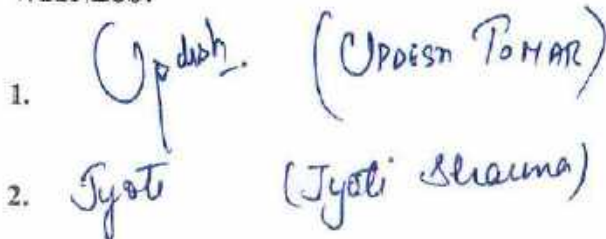 WITNESS:
1. Updesh. (UPDESH TOMAR)
2. Jyoti (Jyoti Sharma)